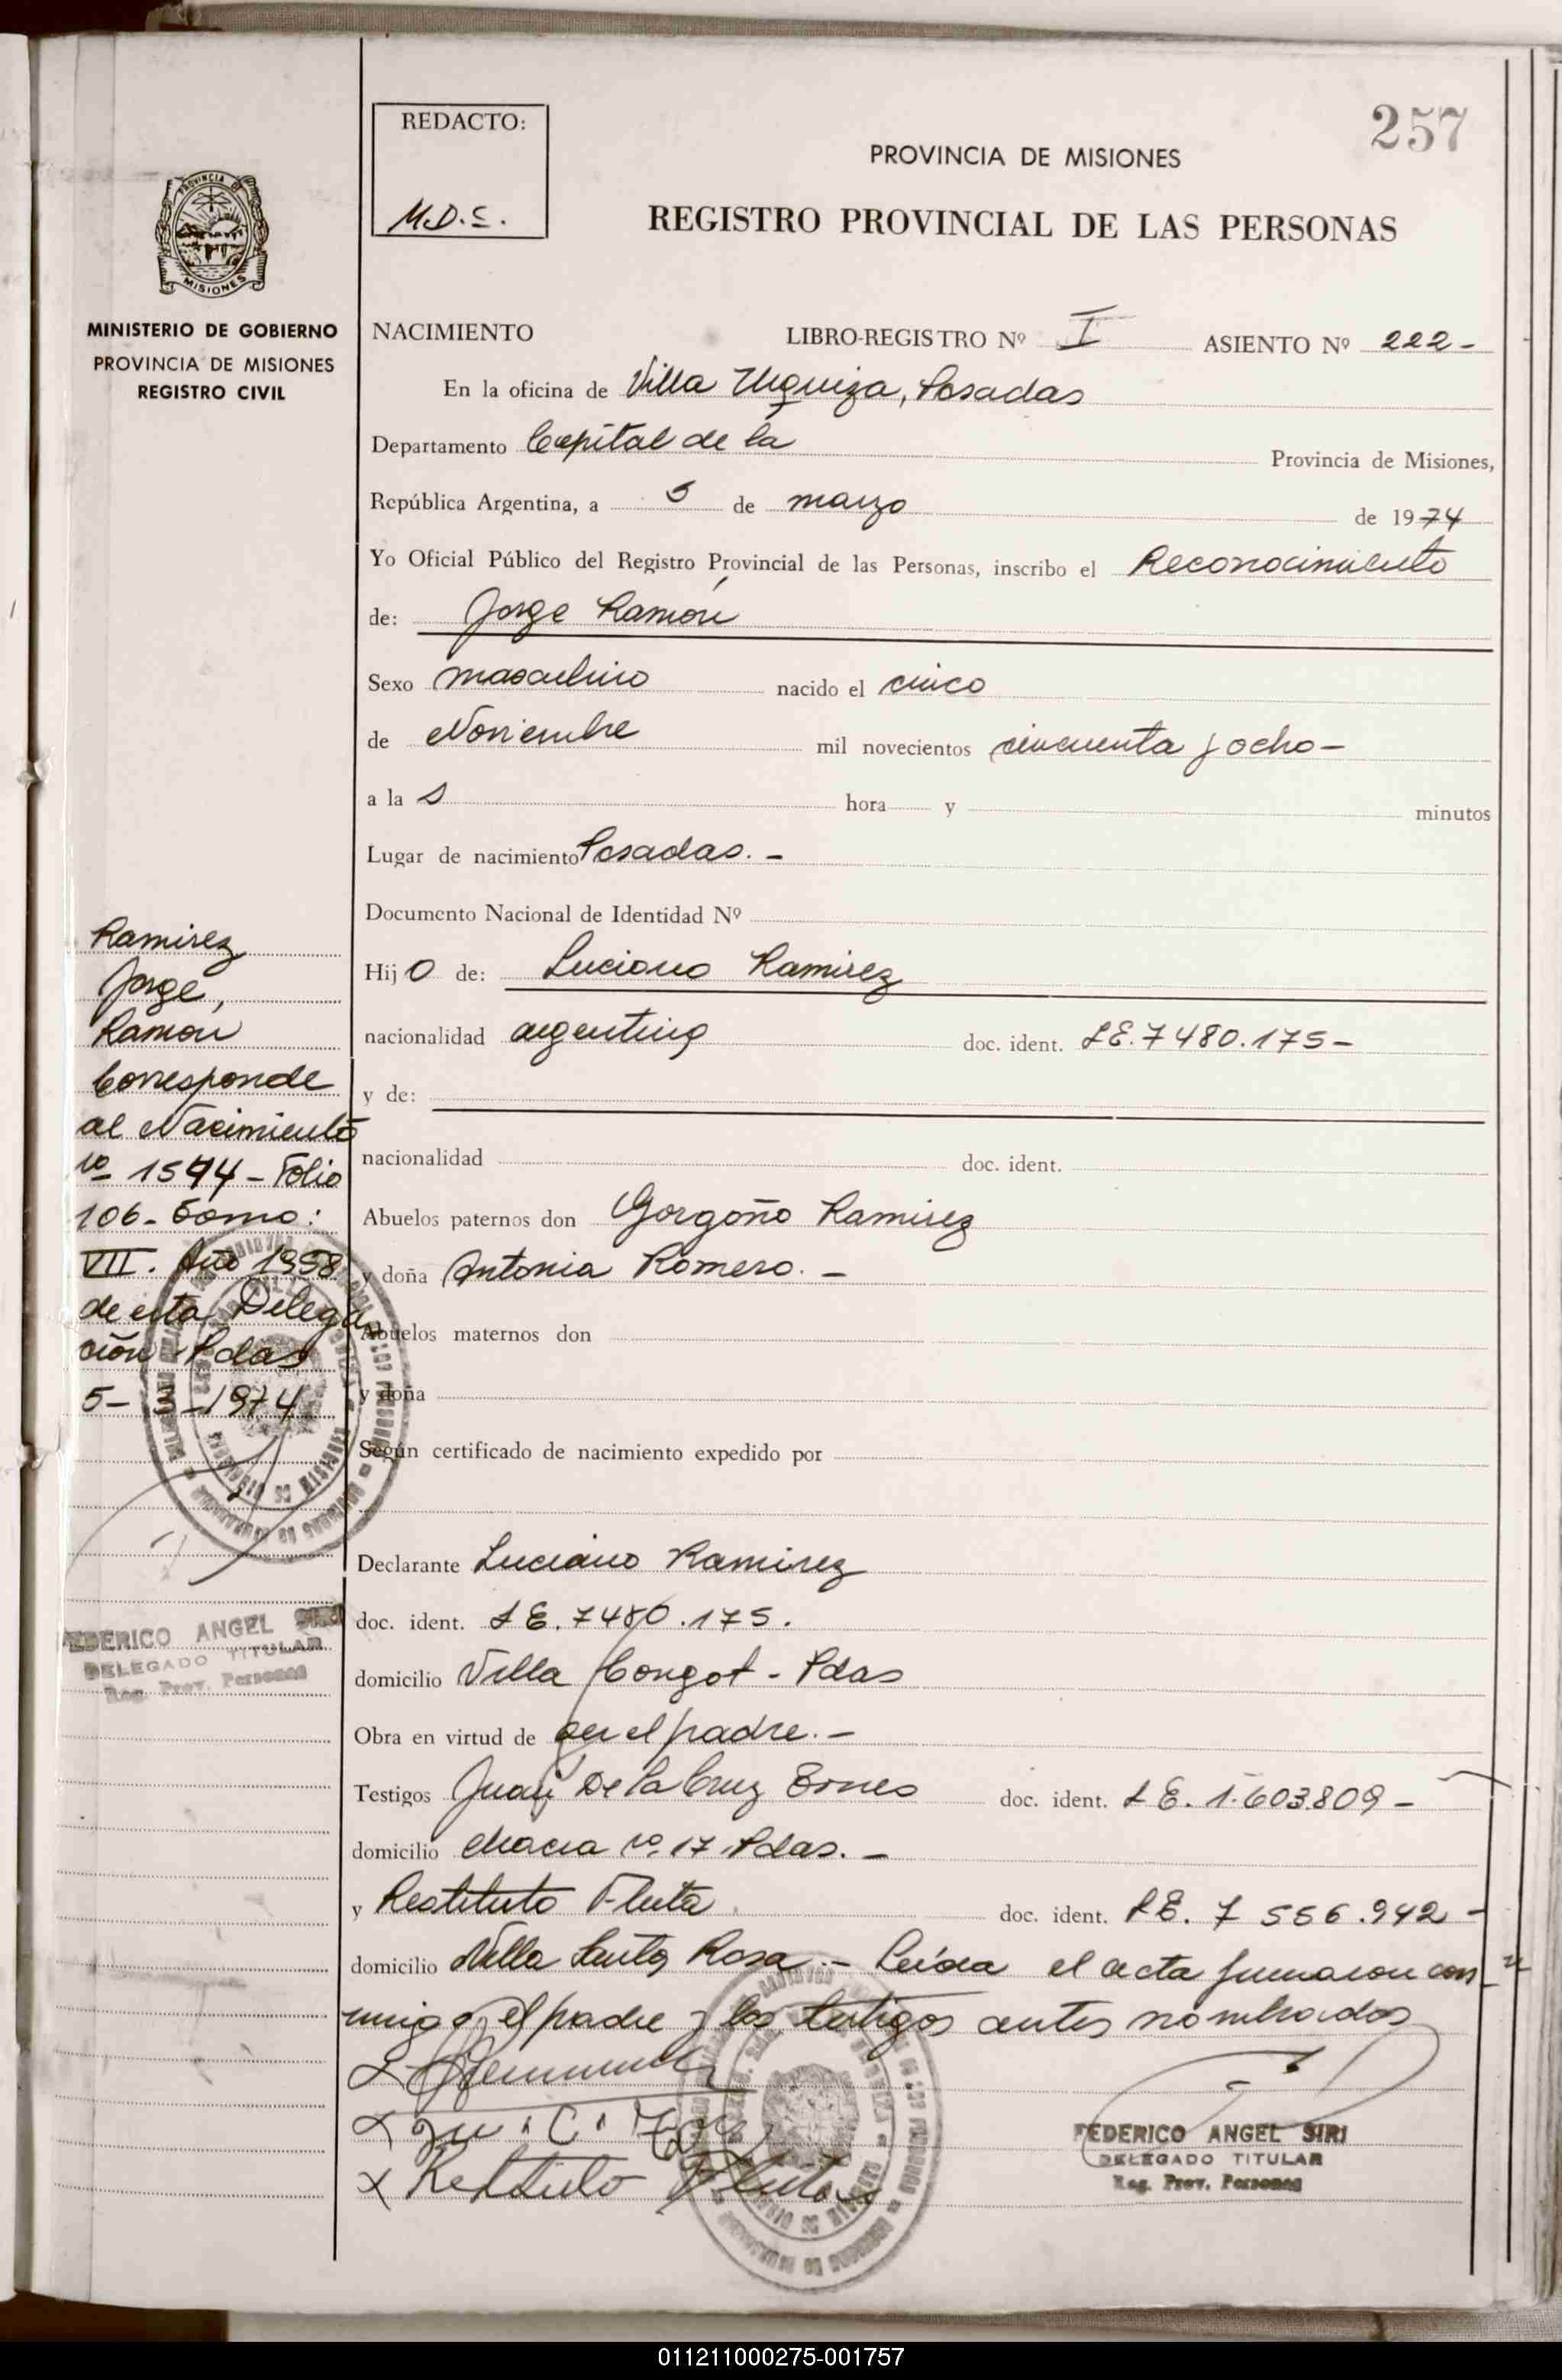 257
REDACTO:
M.D.S.
PROVINCIA DE MISIONES
REGISTRO PROVINCIAL DE LAS PERSONAS
PROVINCIA D MISIONES
MINISTERIO DE GOBIERNO
PROVINCIA DE MISIONES
REGISTRO CIVIL
NACIMIENTO LIBRO-REGISTRO Nº I ASIENTO Nº 222-
En la oficina de Villa Urquiza, Posadas
Departamento Capital de la Provincia de Misiones,
República Argentina, a 5 de marzo de 1974
Yo Oficial Público del Registro Provincial de las Personas, inscribo el Reconocimiento
de: Jorge Ramón
Sexo masculino nacido el cinco
de Noviembre mil novecientos cincuenta y ocho-
a la s hora y minutos
Lugar de nacimiento Posadas. -
Documento Nacional de Identidad Nº
Hijo de: Luciano Ramirez
nacionalidad argentino doc. ident. LE. 7480.175-
y de:
nacionalidad doc. ident.
Abuelos paternos don Gorgoño Ramirez
y doña Antonia Romero. -
Abuelos maternos don
y doña
Según certificado de nacimiento expedido por
Declarante Luciano Ramirez
doc. ident. LE. 7480.175.
domicilio Villa - Pdas
Obra en virtud de ser el padre. -
Testigos Juan De la Cruz doc. ident. LE. 1.603.809-
domicilio Chacra nº 17 Pdas. -
y Restituto Fleita doc. ident. LE. 7 556.942-
domicilio Villa Santa Rosa - Leída el acta firmaron con
migo, el padre y los testigos antes nombrados
Restituto Fleitas
FEDERICO ANGEL SIRI
DELEGADO TITULAR
Reg. Prov. Personas
Ramirez
Jorge,
Ramon
Corresponde
al Nacimiento
nº 1594 - Folio
106 - Tomo:
VII. Año 1958
de esta Delega
ción Pdas
5-3-1974
FEDERICO ANGEL SIRI
DELEGADO TITULAR
Reg. Prov. Personas
011211000275-001757